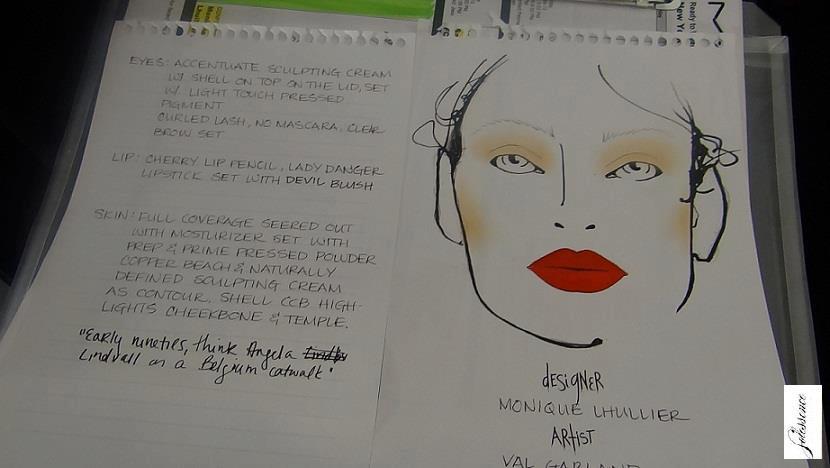 EYES: ACCENTUATE SCULPTING CREAM
W/ SHELL ON TOP ON THE LID, SET
W/ LIGHT TOUCH PRESSED
PIGMENT
CURLED LASH, NO MASCARA, CLEAR
BROW SET
LIP: CHERRY LIP PENCIL, LADY DANGER
LIPSTICK SET WITH DEVIL BLUSH
SKIN: FULL COVERAGE SEERED OUT
WITH MOSTURIZER SET WITH
PREP & PRIME PRESSED POWDER
COPPER BEACH & NATURALLY
DEFINED SCULPTING CREAM
AS CONTOUR, SHELL CCB HIGH-
LIGHTS CHEEKBONE & TEMPLE.
"Early nineties, think Angela
Lindvall on a Belgium catwalk"
Ready to
New Yo
M
DESIGNER
MONIQUE LHULLIER
ARTIST
VAL GARLAND